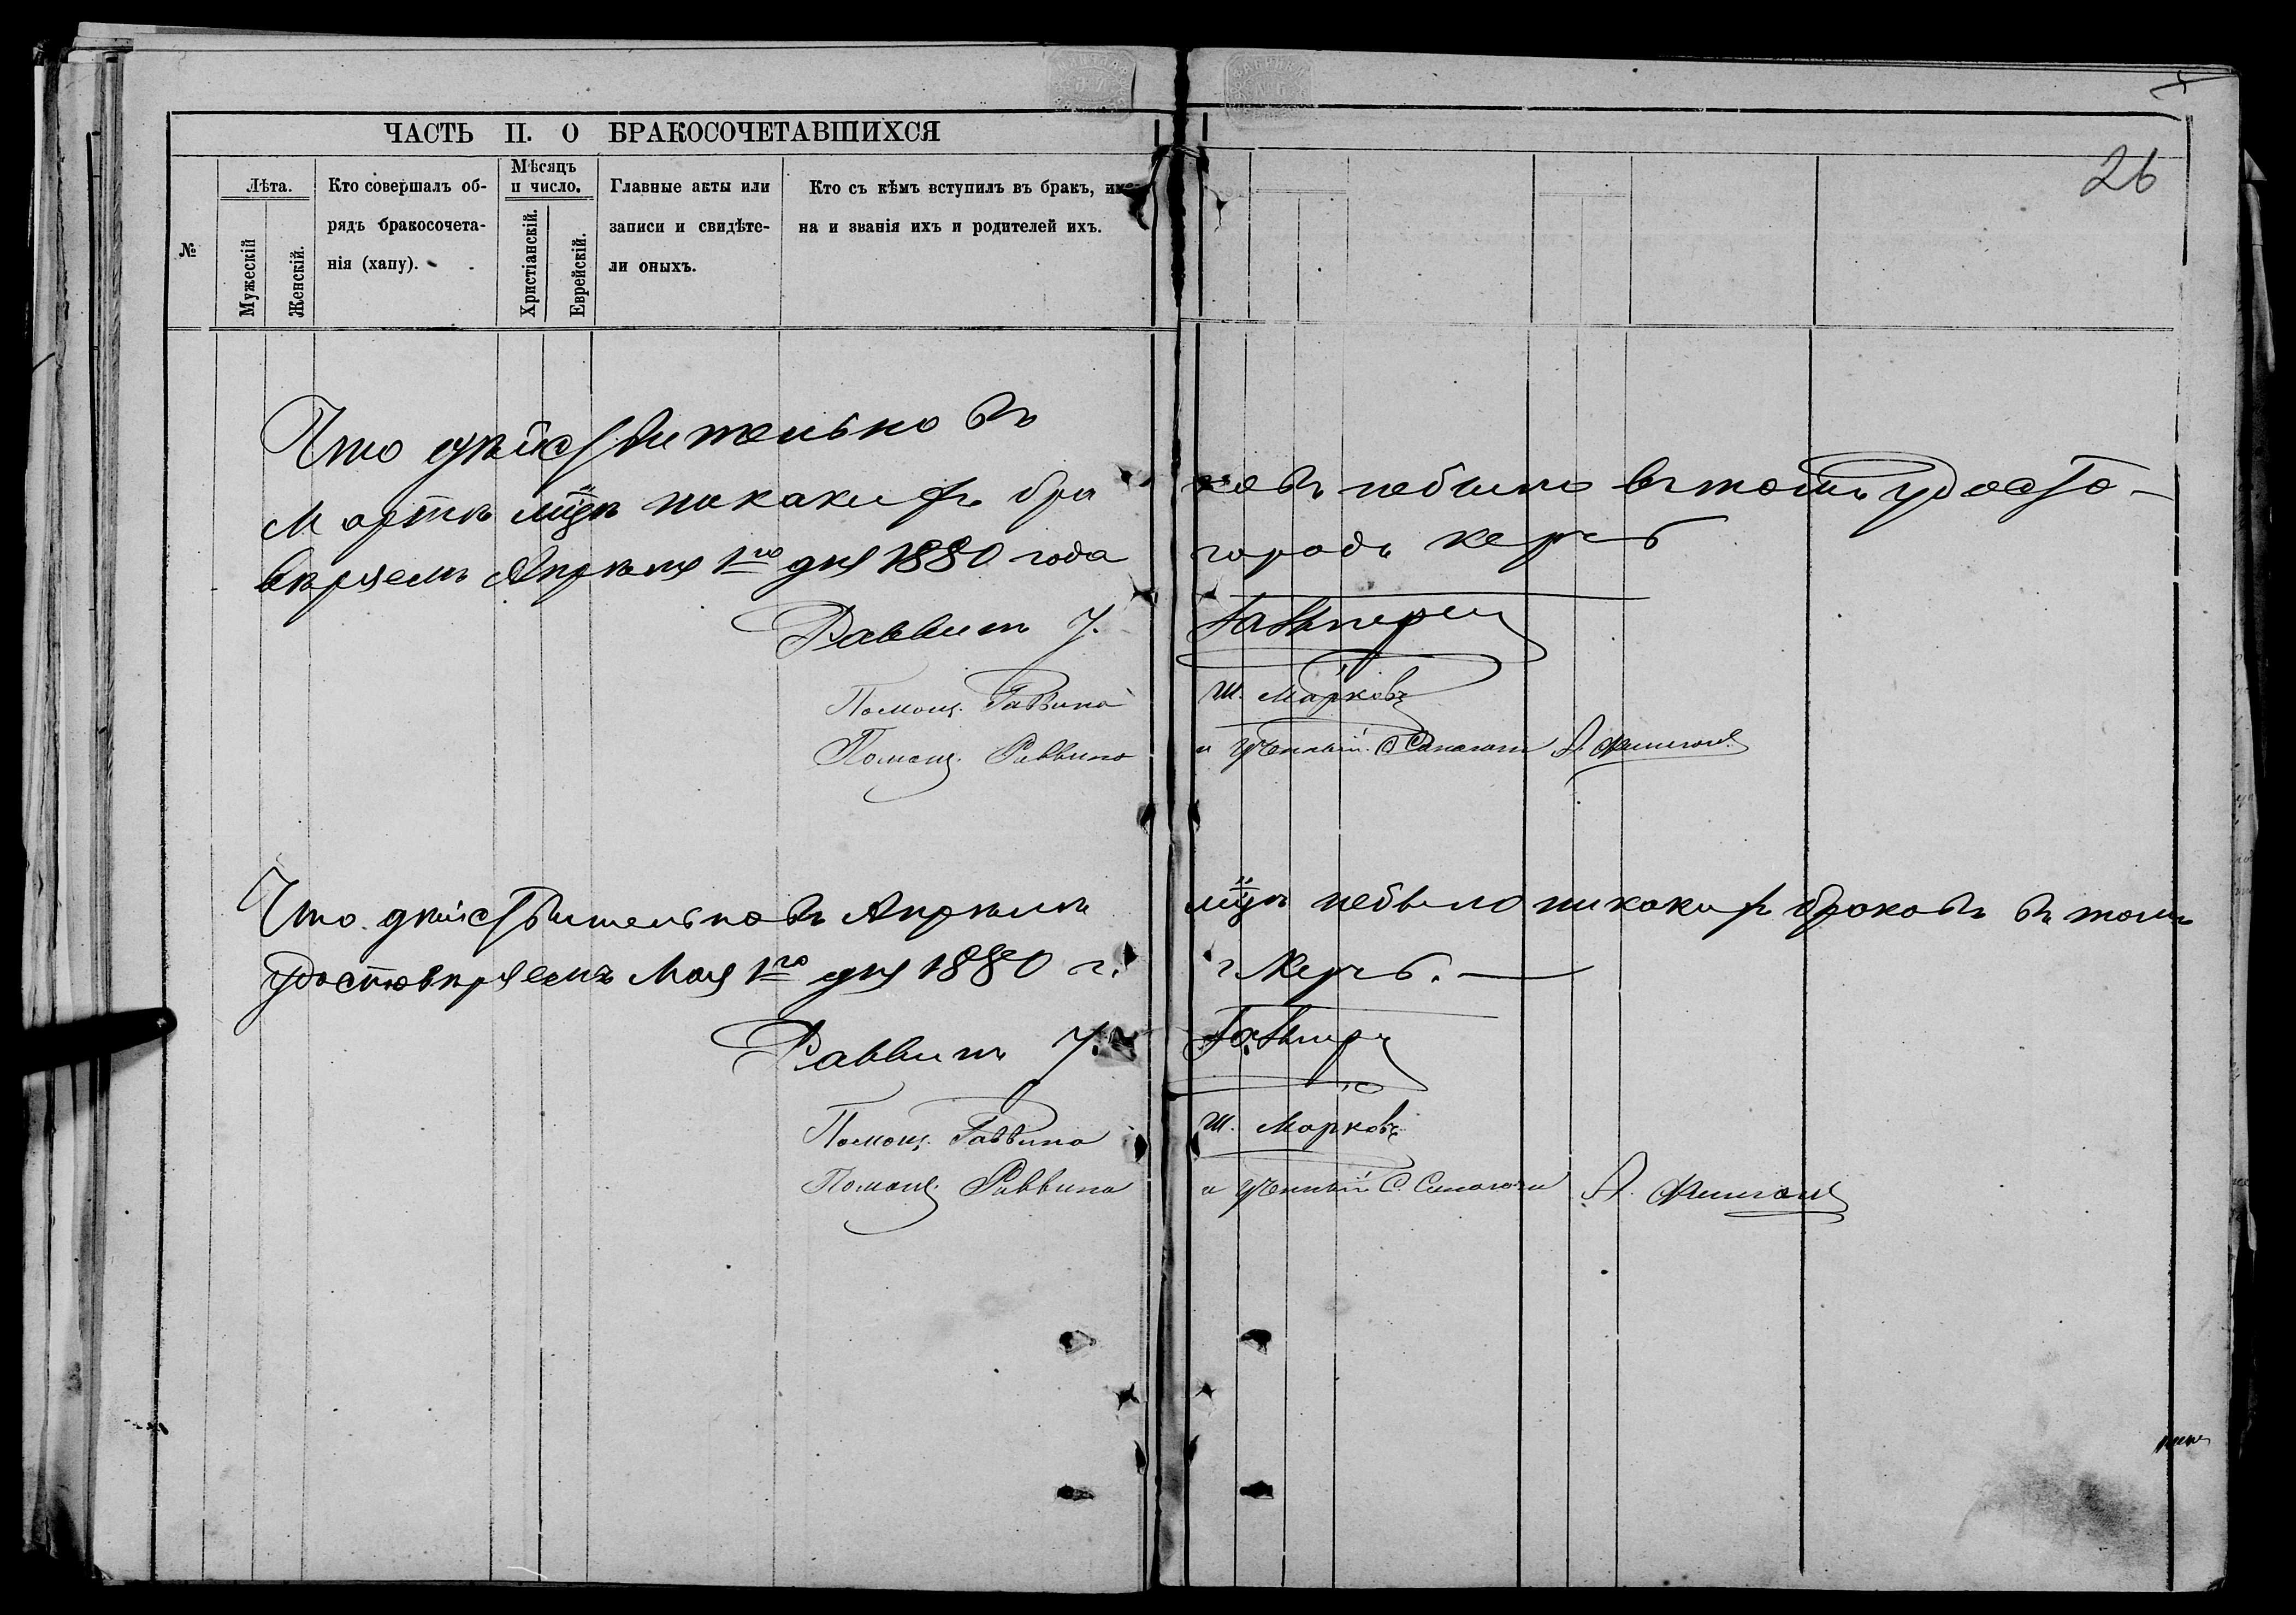 26
ЧАСТЬ II. О БРАКОСОЧЕТАВШИХСЯ
№
Лѣта.
Мужескій
Женскій.
Кто совершалъ об-
рядъ бракосочета-
нія (хапу).
Мѣсяцъ
и число.
Христіанскій.
Еврейскій.
Главные акты или
записи и свидѣте-
ли оныхъ.
Кто съ кѣмъ вступилъ въ бракъ, име-
на и званія ихъ и родителей ихъ.
Что дѣйствительно въ
Мартѣ м-цѣ никакихъ бра ковъ небыло въ томъ удосто-
вѣряемъ Апрѣля 1го дня 1880 года городъ Керчь
Раввинъ
Помощ. Раввина Ш. Марковъ
Помощ. Раввина и Ученный С. Синагоги А.
Что дѣйствительно въ Апрѣлѣ м-цѣ небыло никакихъ браковъ въ томъ
удостовѣряемъ Мая 1го дня 1880 г. г Керчь.
Раввинъ
Помощ. Раввина Ш. Марковъ
Помощ. Раввина и Ученный С. Синагоги А.